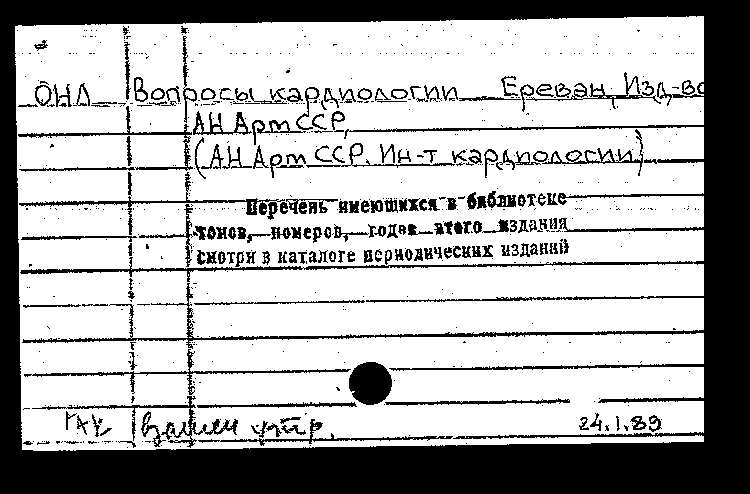 ОНЛ Вопросы кардиологии Ереван, Изд-во
АН АртССР,
(АН АртССР. Ин-т кардиологии)
Перечень имеющихся в библиотеке
томов, номеров, годов этого издания
смотри в каталоге периодических изданий
ГАУ взамен утр. 24.1.89